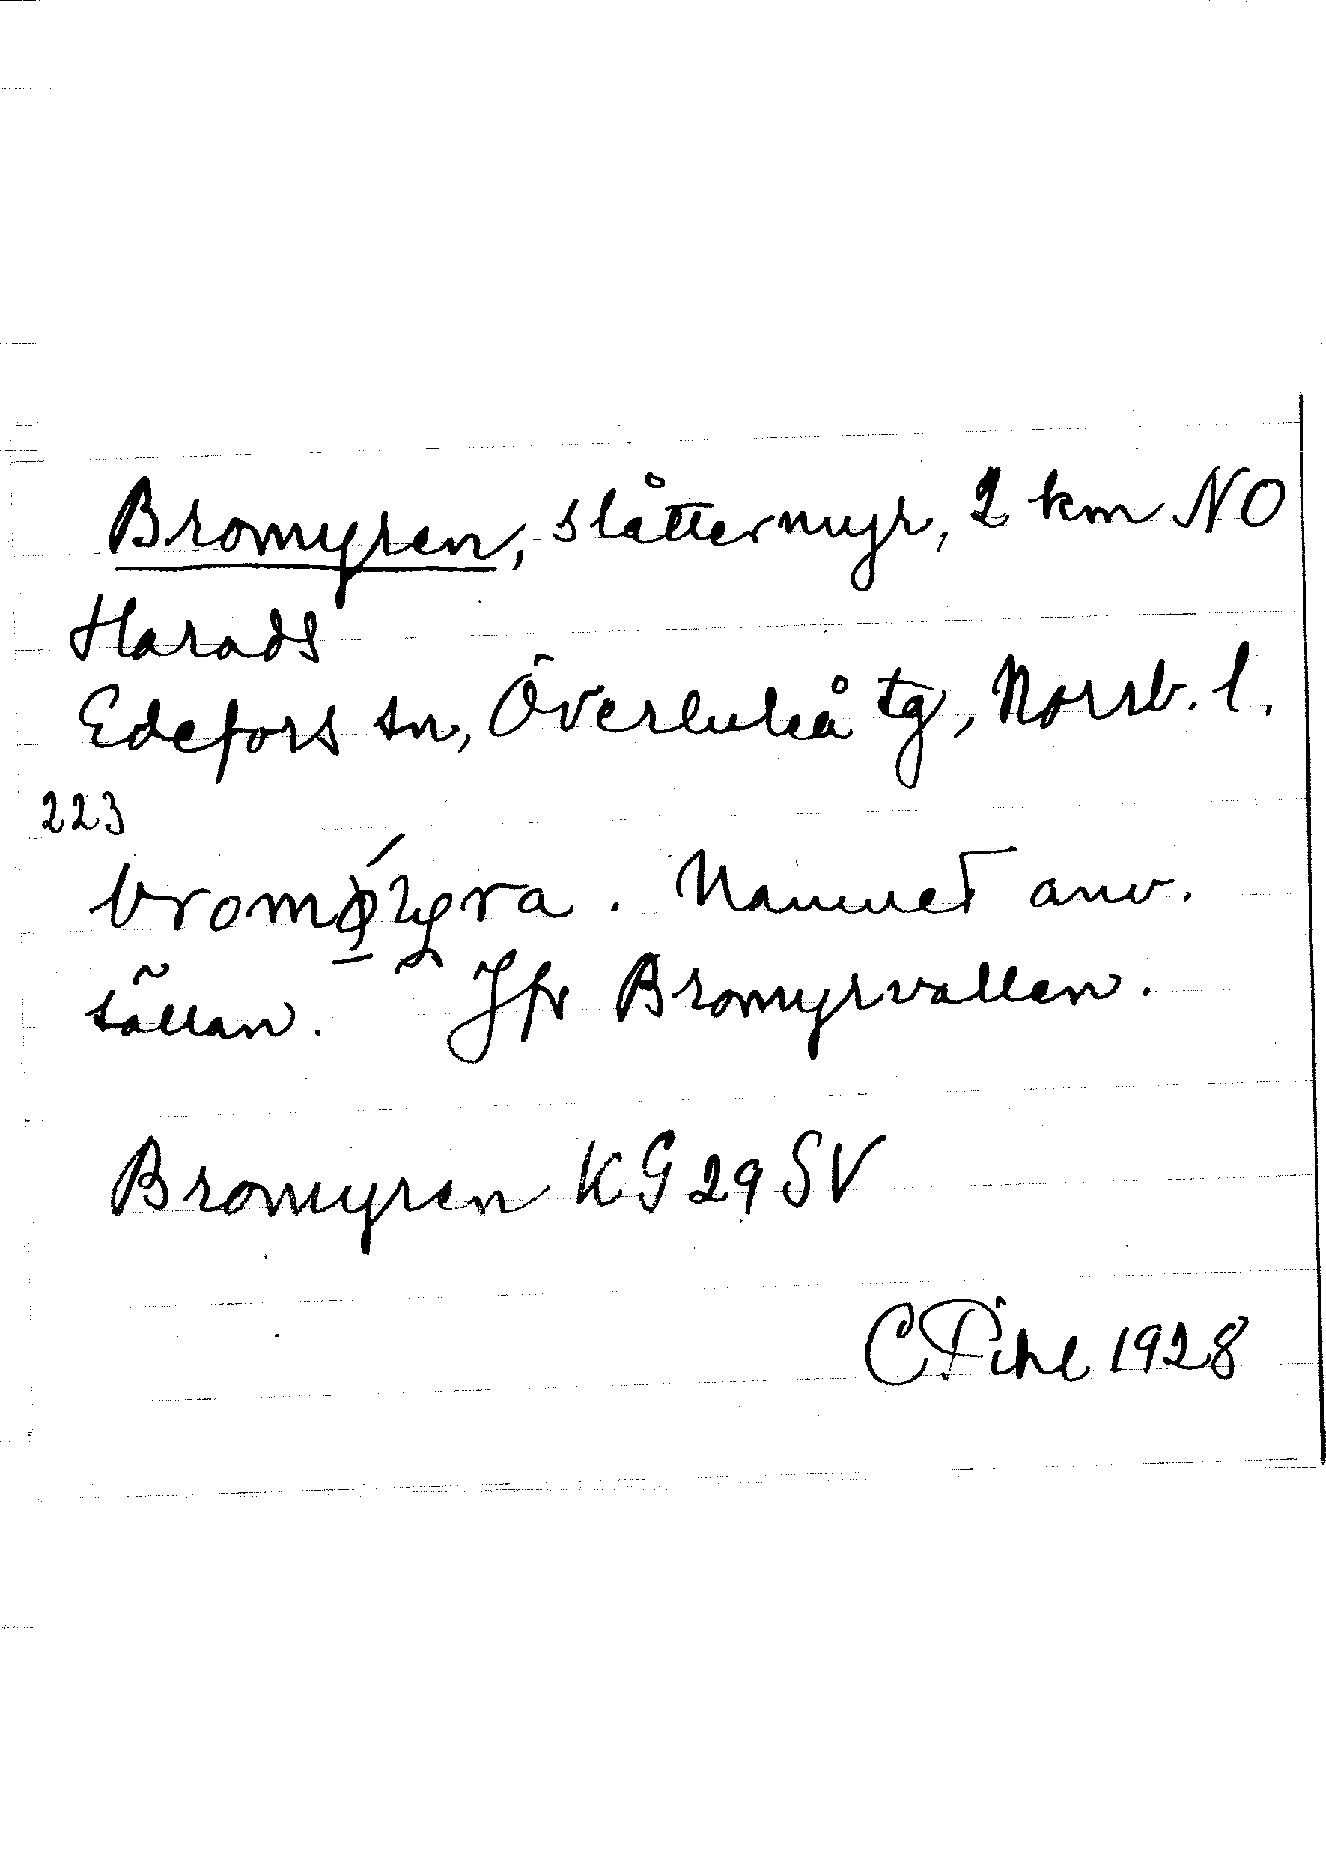 Bromyren, slåttermyr, 2 km NO
Harads
Edefors sn, Överluleå tg, Norrb. l.
223
. Namnet anv.
sällan. Jfr Bromyrvallen.
Bromyren KG 29 SV
C Pihl 1928